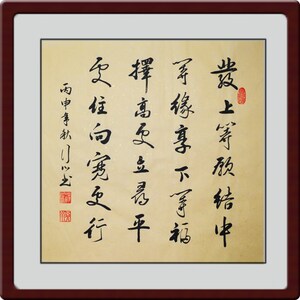 發上等願結中
等緣享下等福
擇高處立尋平
處住向寬處行
丙申年秋